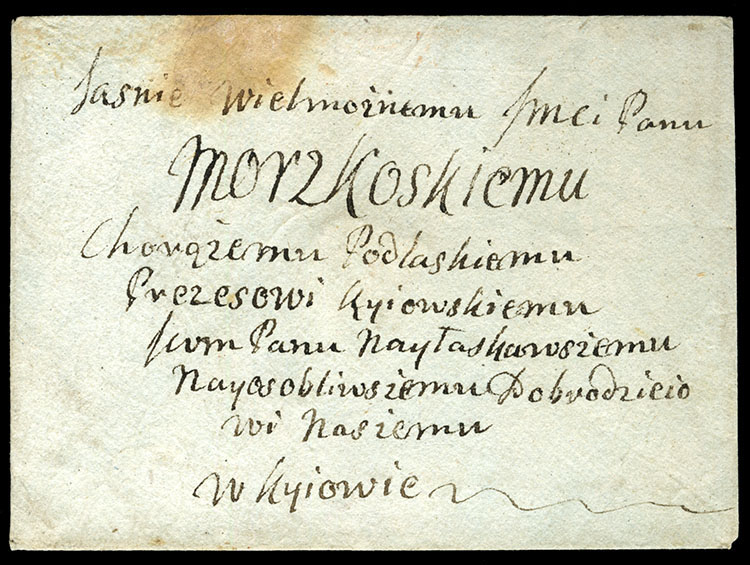 Jasnie Wielmożnemu Jmci Panu
Morzkoskiemu
Chorążemu Podlaskiemu
Prezesowi Kyiowskiemu
Panu Nayłaskawszemu
Nayosobliwszemu Dobrodzieio
wi Naszemu
w Kyiowie